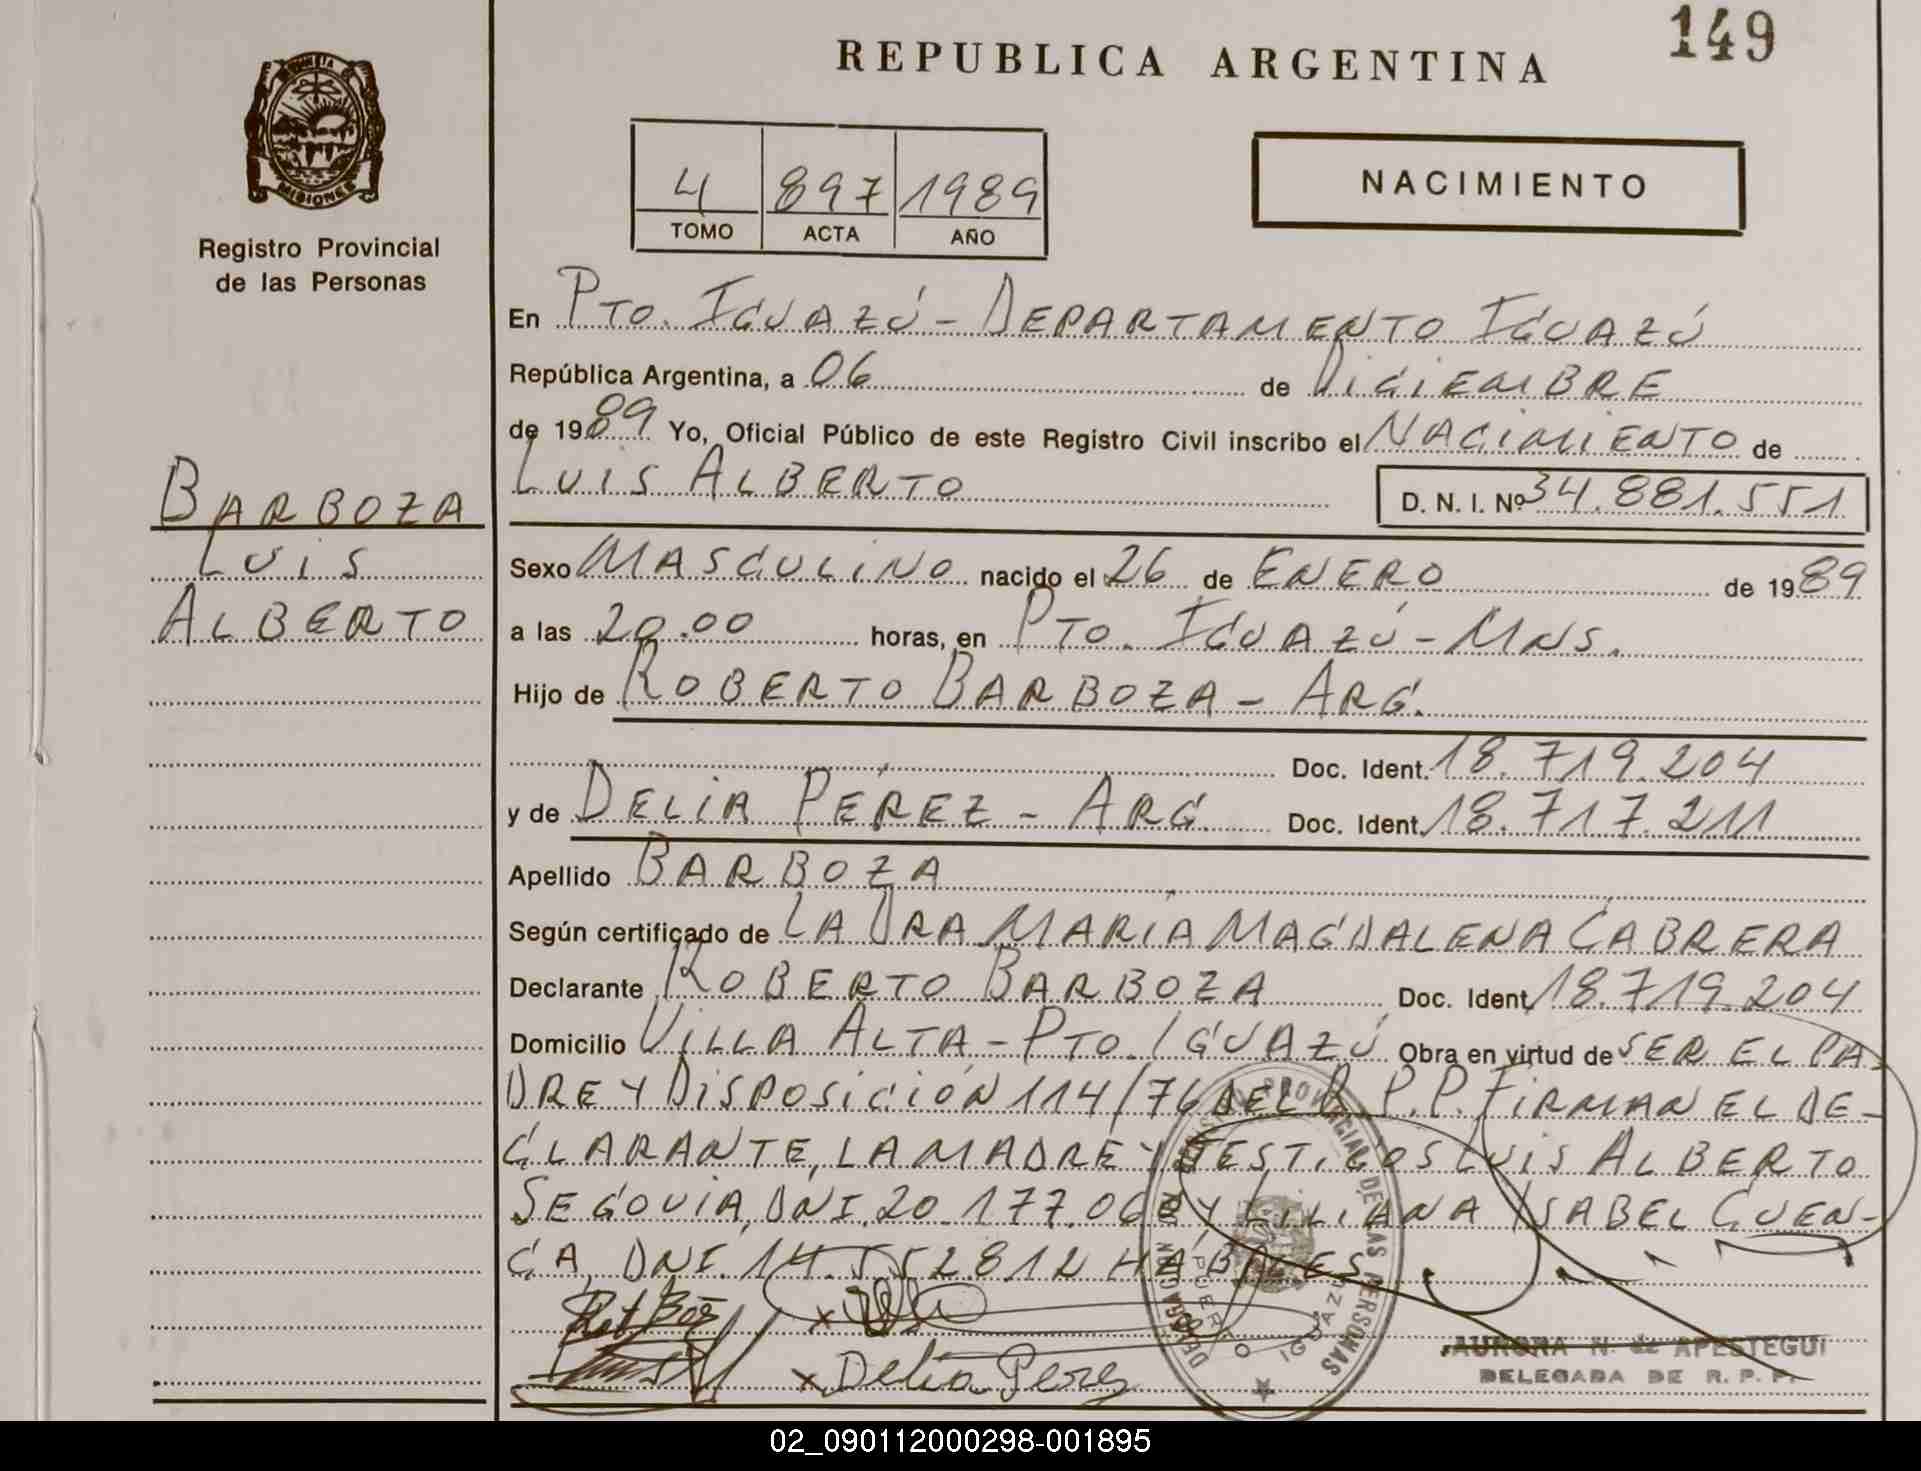 149
REPUBLICA ARGENTINA
PROVINCIA
MISIONES
Registro Provincial
de las Personas
4 897 1989
TOMO ACTA AÑO
NACIMIENTO
En PTO. IGUAZÚ - DEPARTAMENTO IGUAZÚ
República Argentina, a 06 de DICIEMBRE
de 1989 Yo, Oficial Público de este Registro Civil inscribo el NACIMIENTO de
LUIS ALBERTO D. N. I. Nº 34.881.551
BARBOZA
LUIS
ALBERTO
Sexo MASCULINO nacido el 26 de ENERO de 1989
a las 20.00 horas, en PTO. IGUAZÚ - MNS.
Hijo de ROBERTO BARBOZA - ARG.
Doc. Ident. 18.719.204
y de DELIA PÉREZ - ARG. Doc. Ident. 18.717.211
Apellido BARBOZA
Según certificado de LA DRA MARÍA MAGDALENA CABRERA
Declarante ROBERTO BARBOZA Doc. Ident. 18.719.204
Domicilio VILLA ALTA - PTO. IGUAZÚ Obra en virtud de SER EL PA
DRE Y DISPOSICIÓN 114/76 DEL R.P.P. FIRMAN EL DE-
CLARANTE, LA MADRE Y TESTIGOS LUIS ALBERTO
SEGOVIA, DNI. 20.177.06 Y LILIANA ISABEL CUEN-
CA, DNI. 14.552.812 HÁBILES
x Delia Perez
REGISTRO PROVINCIAL DE LAS PERSONAS
DELEGACION
PUERTO IGUAZU
AURORA N. de APESTEGUI
DELEGADA DE R. P. P.
02_090112000298-001895